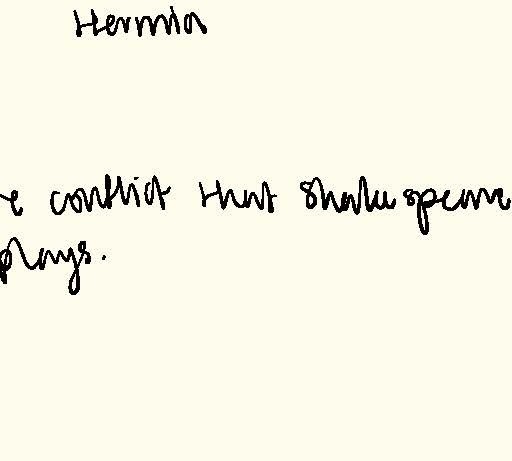 Hermia
e conflict that Shakespeare
plays.